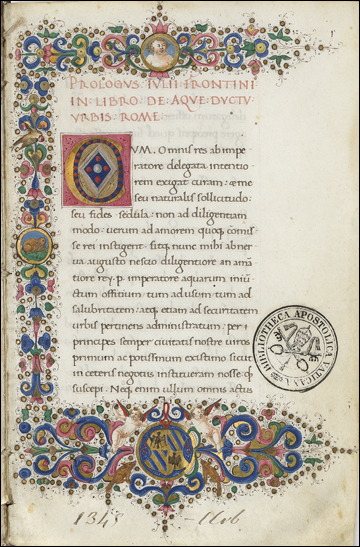 PROLOGVS·IVLII·FRONTINI
IN·LIBRO·DE·AQVE·DVCTV
VRBIS·ROME·
VM·Omnis res ab impe
ratore delegata intentio
rem exigat curam: & me
seu naturalis sollicitudo:
seu fides sedula: non ad diligentiam
modo: verum ad amorem quoq; comis
se rei instigent: sitq; nunc mihi ab ner
va augusto nescio diligentiore an ama
tiore rey. p. imperatore aquarum iniu
ctum offitium: tum ad usum: tum ad
salubritatem: atq; etiam ad securitatem
urbis pertinens administratum: per
principes semper civitatis nostre viros
primum ac potissimum existimo sicut
in ceteris negotiis institueram nosse: q
suscepi. Neq; enim ullum omnis actus
BIBLIOTHECA APOSTOLICA VATICANA